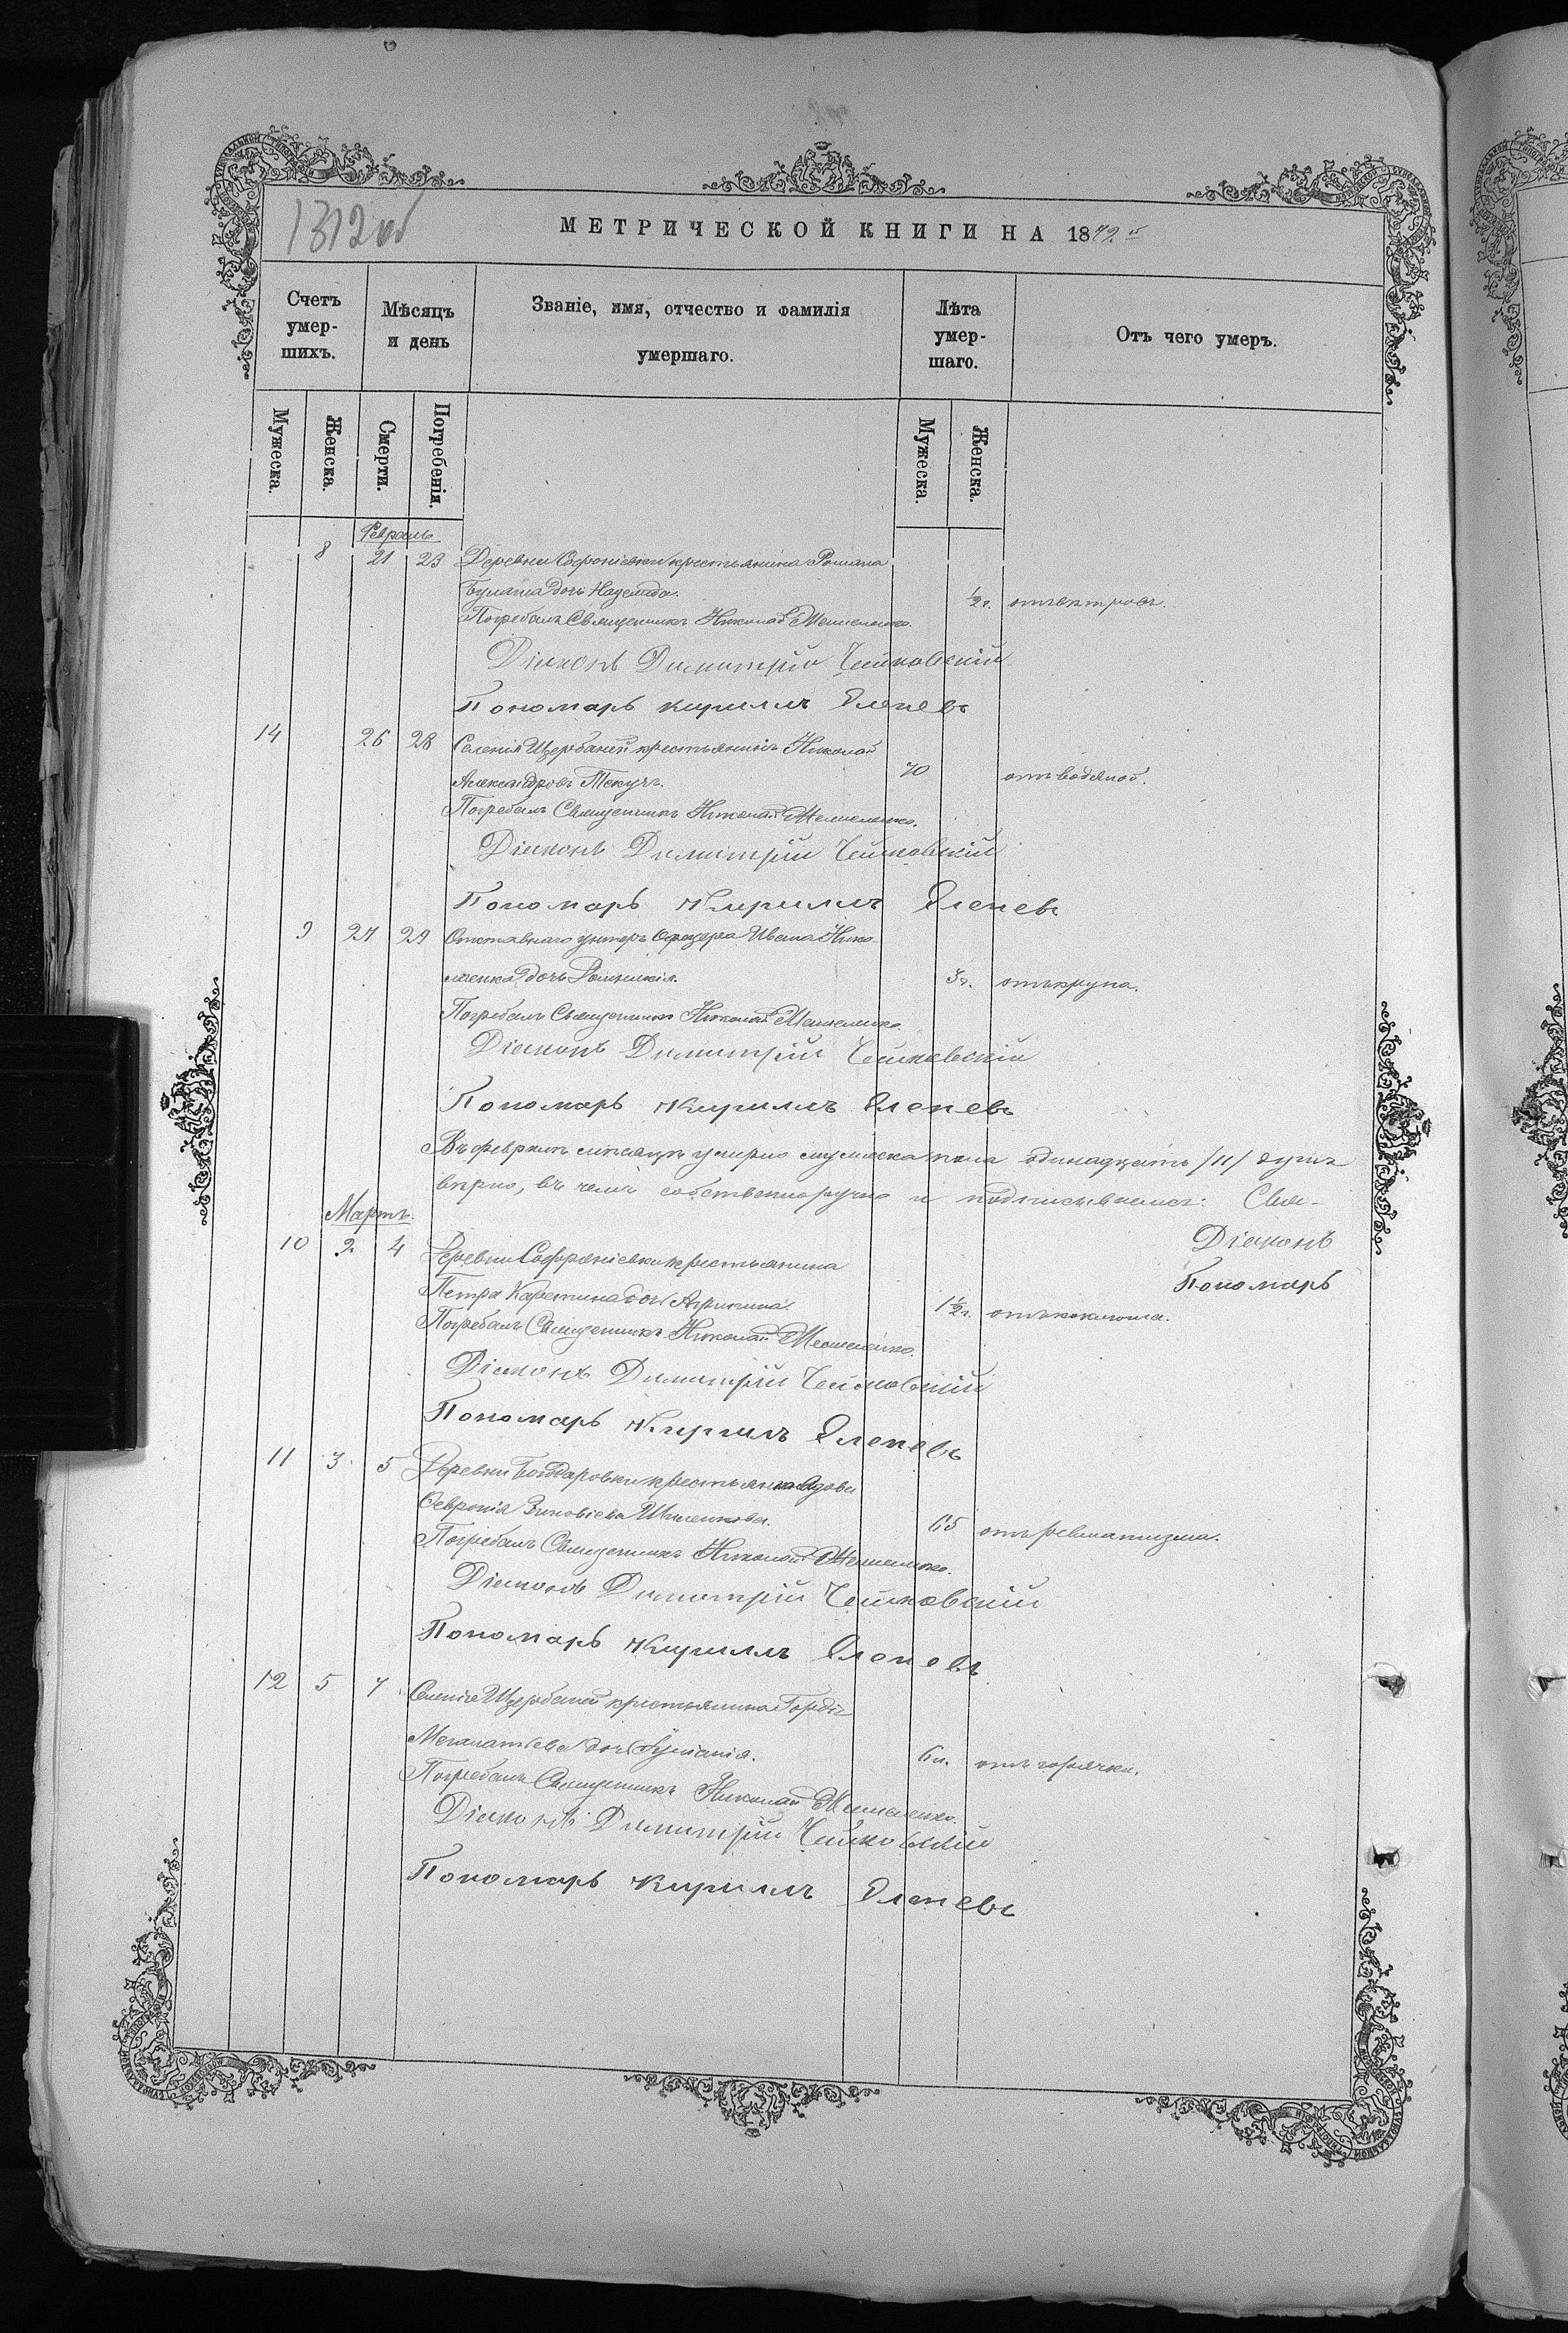 1312 об
МЕТРИЧЕСКОЙ КНИГИ НА 1872 й
Счетъ умер- шихъ.
Мѣсяцъ и день
Званіе, имя, отчество и фамилія умершаго.
Лѣта умер- шаго.
Отъ чего умеръ.
Мужеска. Женска. Смерти. Погребенія. Мужеска. Женска.
Февраль
8 21 23 Деревни Софроніевки крестьянина Романа
дочь Надежда. ½ г. отъ вѣтровъ.
Погребалъ Священникъ Николай
Діаконъ Димитрій Чайковскій
Пономарь Кириллъ Еленевъ
14 26 28 Селенія Щербаней крестьянинъ Николай
Александровъ Текучъ. 70 отъ водяной.
Погребалъ Священникъ Николай
Діаконъ Димитрій Чайковскій
Пономарь Кириллъ Еленевъ
9 27 29 Отставнаго унтеръ Офицера Ивана Нико-
лаенка дочь 3 г. отъ крупа.
Погребалъ Священникъ Николай
Діаконъ Димитрій Чайковскій
Пономарь Кириллъ Еленевъ
Въ февралѣ мѣсяцѣ умерло мужеска пола одинадцать /11/ душъ
вѣрно, въ чемъ собственноручно и подписываемся: Свя-
Мартъ.
Діаконъ
10 2 4 Деревни Софроніевки крестьянина
Пономарь
Петра дочь Агрипина. 1½ г. отъ коклюша.
Погребалъ Священникъ Николай
Діаконъ Димитрій Чайковскій
Пономарь Кириллъ Еленевъ
11 3 5 Деревни Бондаровки крестьянка вдова
Февронія Зиновіева 65 отъ ревматизма.
Погребалъ Священникъ Николай
Діаконъ Димитрій Чайковскій
Пономарь Кириллъ Еленевъ
12 5 7 Селенія Щербаней крестьянина Гордія
дочь 6 м. отъ горячки.
Погребалъ Священникъ Николай
Діаконъ Димитрій Чайковскій
Пономарь Кириллъ Еленевъ